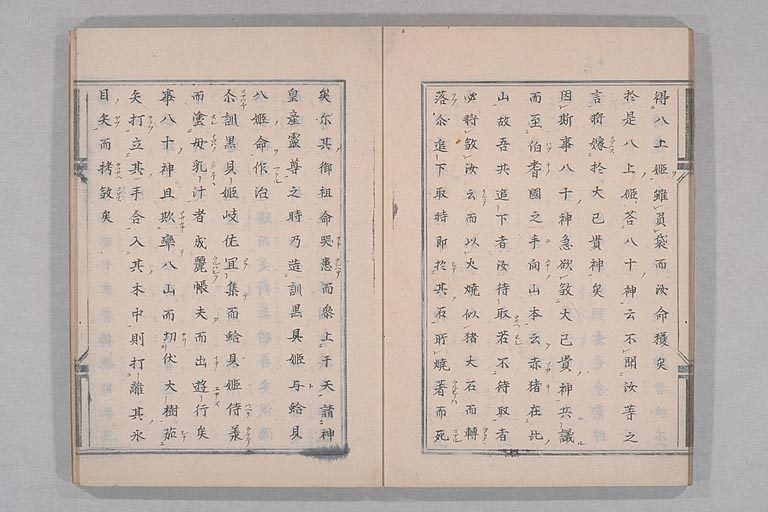 得八上姫雖負袋而汝命獲矣
於是八上姫荅八十神云不聞汝等之
言將嫁於大己貴神矣
因斯事八十神急欲殺大己貴神共議
而至伯耆國之手向山本云赤猪在此
山故吾共追下者汝待取若不待取者
必將殺汝云而以火燒似猪大石而轉
落尒追下取時即於其石所燒著而死
矣尓其御祖命哭患而參上于天請神
皇産靈尊之時乃造訓黒貝姫与蛤貝
八姫命作治
尒訓黒貝姫岐佐冝集而蛤貝姫待羕
而塗毋乳汁者成麗帳夫而出遊行矣
事八十神且欺率入山而切伏大樹茄
矢打立其手合入其木中則打離其氷
目矢而拷殺矣